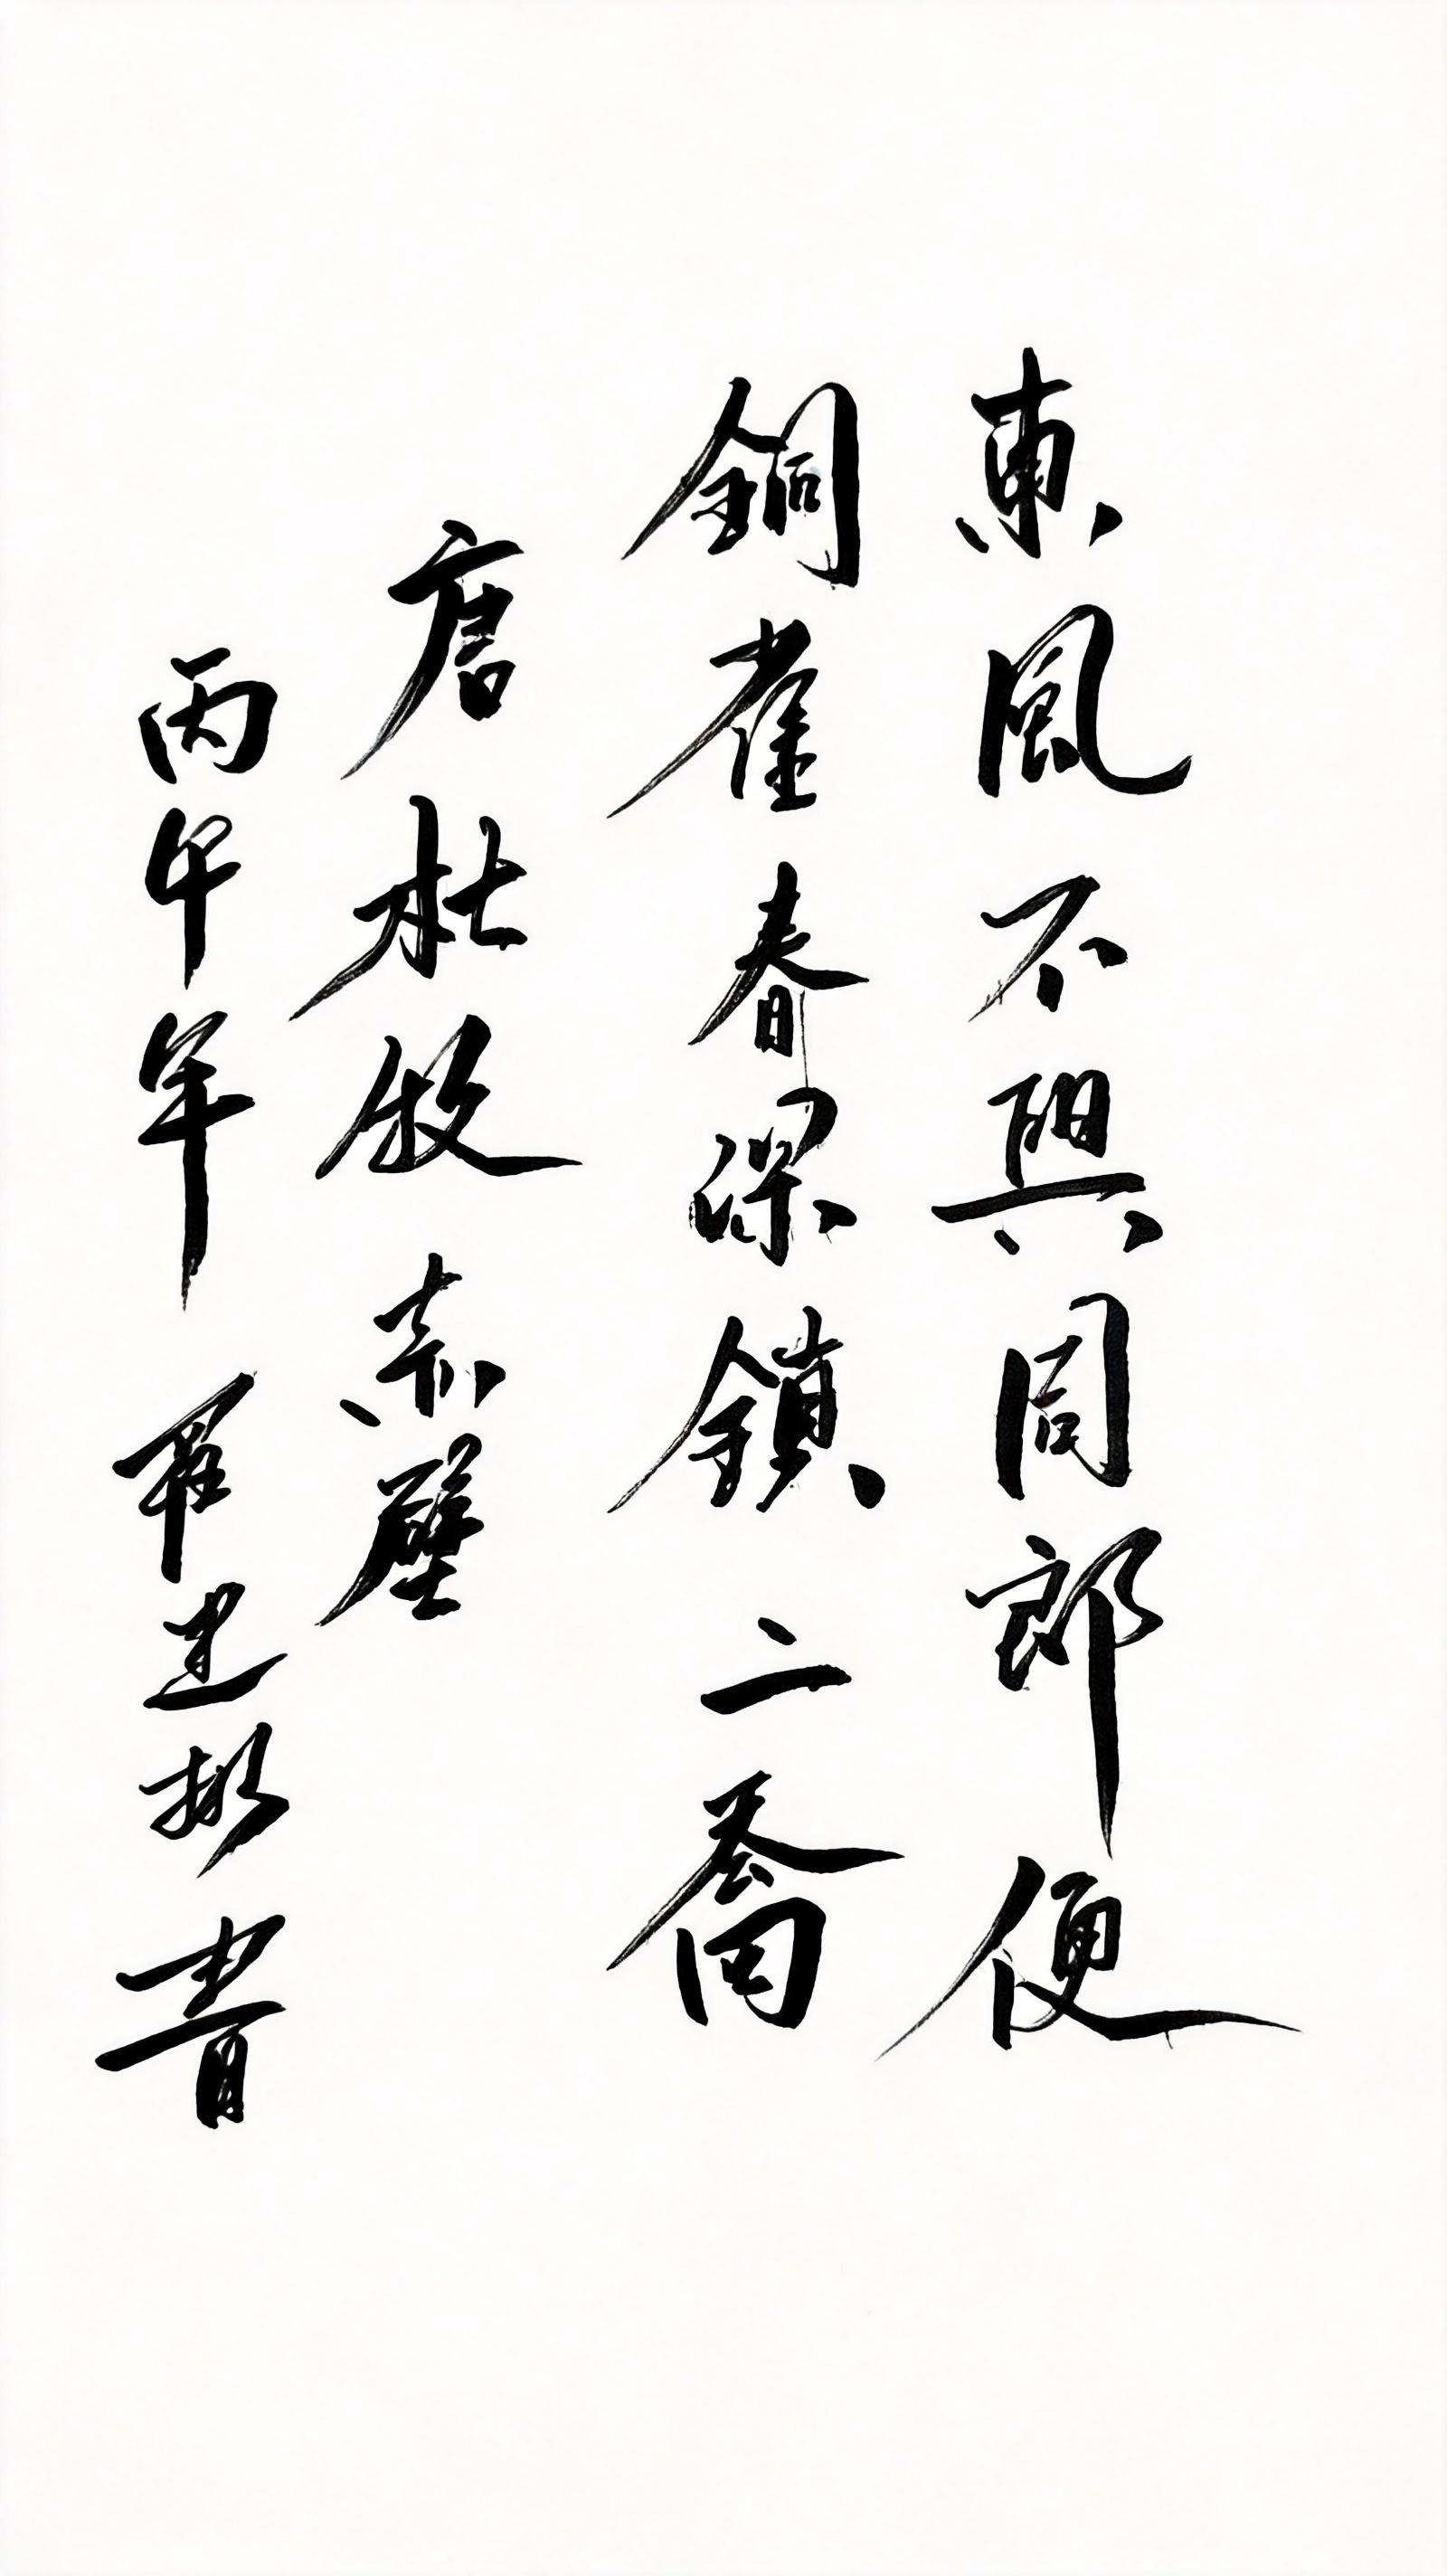 東風不與周郎便
銅雀春深鎖二喬
唐杜牧 赤壁
丙午年 羅建書